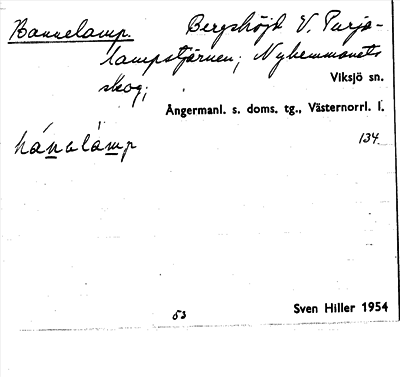 Bannelamp. Bergshöjd V. Purjo-
lampstjärnen; Nyhemmanets
skog;
Viksjö sn.
Ångermanl. s. doms. tg., Västernorrl. l.
134.
53
Sven Hiller 1954